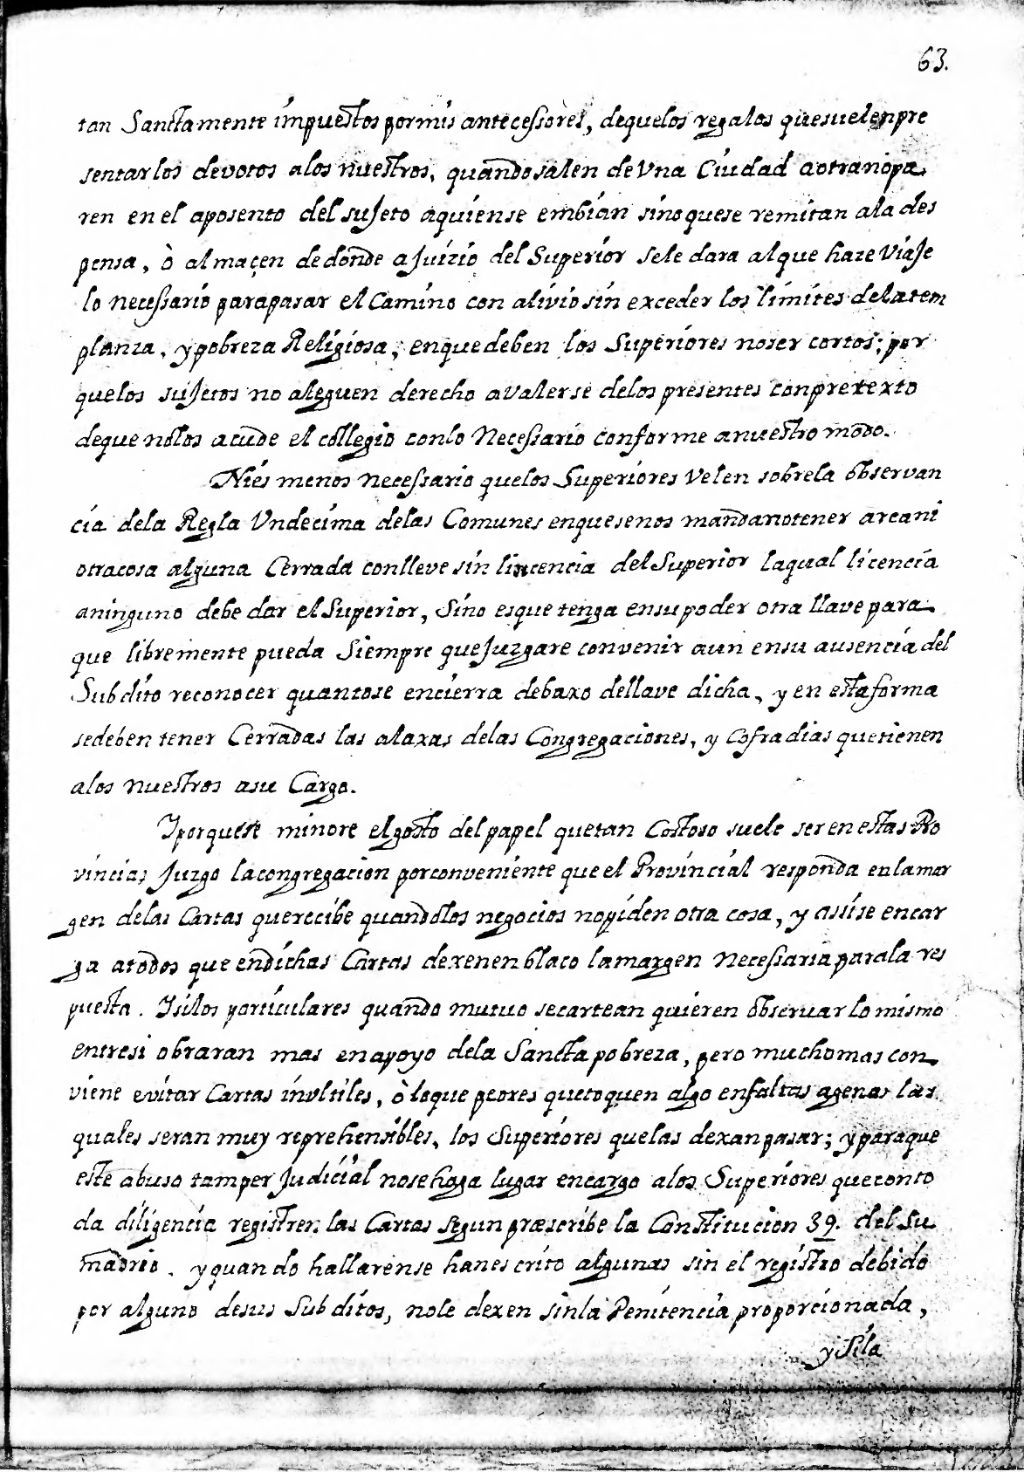 63.
tan Sanctamente impuestos pormis antecessores, dequelos regalos quesuelenpre
sentarlos devotos alos nuestros, quandosalen deVna Ciudad aotranopa
ren en el aposento del sujeto aquiense embian sinoquese remitan ala des
pensa, ò almaçen dedonde aJuizio del Superior sele dara alque haze Viaje
lo necessario parapasar el Camino con alivio sin exceder los limites delatem
planza, ypobreza Religiosa, enquedeben los Superiores noser cortos; por
quelos sujetos no aleguen derecho aValerse delos presentes conpretexto
deque nolos acude el collegio conlo Necessario conforme anuestro modo.
Nies menos necessario quelos Superiores Velen sobrela observan
cia dela Regla Vndecima delas Comunes enquesenos mandanotener arcani
otracosa alguna Cerrada conllave sin lincencia del Superior laqual licencia
aninguno debe dar el Superior, Sino esque tenga ensupoder otra llave para
que libremente pueda Siempre queJuzgare convenir aun ensu ausencia del
Subdito reconocer quantose encierra debaxo dellave dicha, y en estaforma
sedeben tener Cerradas las alaxas delas Congregaciones, y Cofradias quetienen
alos nuestros asu Cargo.
Iporquese minore elgasto del papel quetan Costoso suele ser en estas Pro
vincias Juzgo lacongregacion porconveniente que el Provincial responda enlamar
gen delas Cartas querecibe quandolos negocios nopiden otra cosa, y assise encar
ga atodos que endichas Cartas dexenen blaco lamargen Necessaria parala res
puesta. Isilos particulares quando mutuo secartean quieren observar lo mismo
entresi obraran mas enapoyo dela Sancta pobreza, pero muchomas con
viene evitar Cartas invltiles, ò loque peores quetoquen algo enfaltas agenas las
quales seran muy reprehensibles, los Superiores quelas dexanpasar; yparaque
este abuso tamperJudicial nosehaga lugar encargo alos Superiores queconto
da diligencia registren las Cartas segun præscribe la Constitucion 39. del Su
mario. yquando hallarense hanescrito algunas sin el registro debido
por alguno desus Subditos, nole dexen sinla Penitencia proporcionada,
y Sila